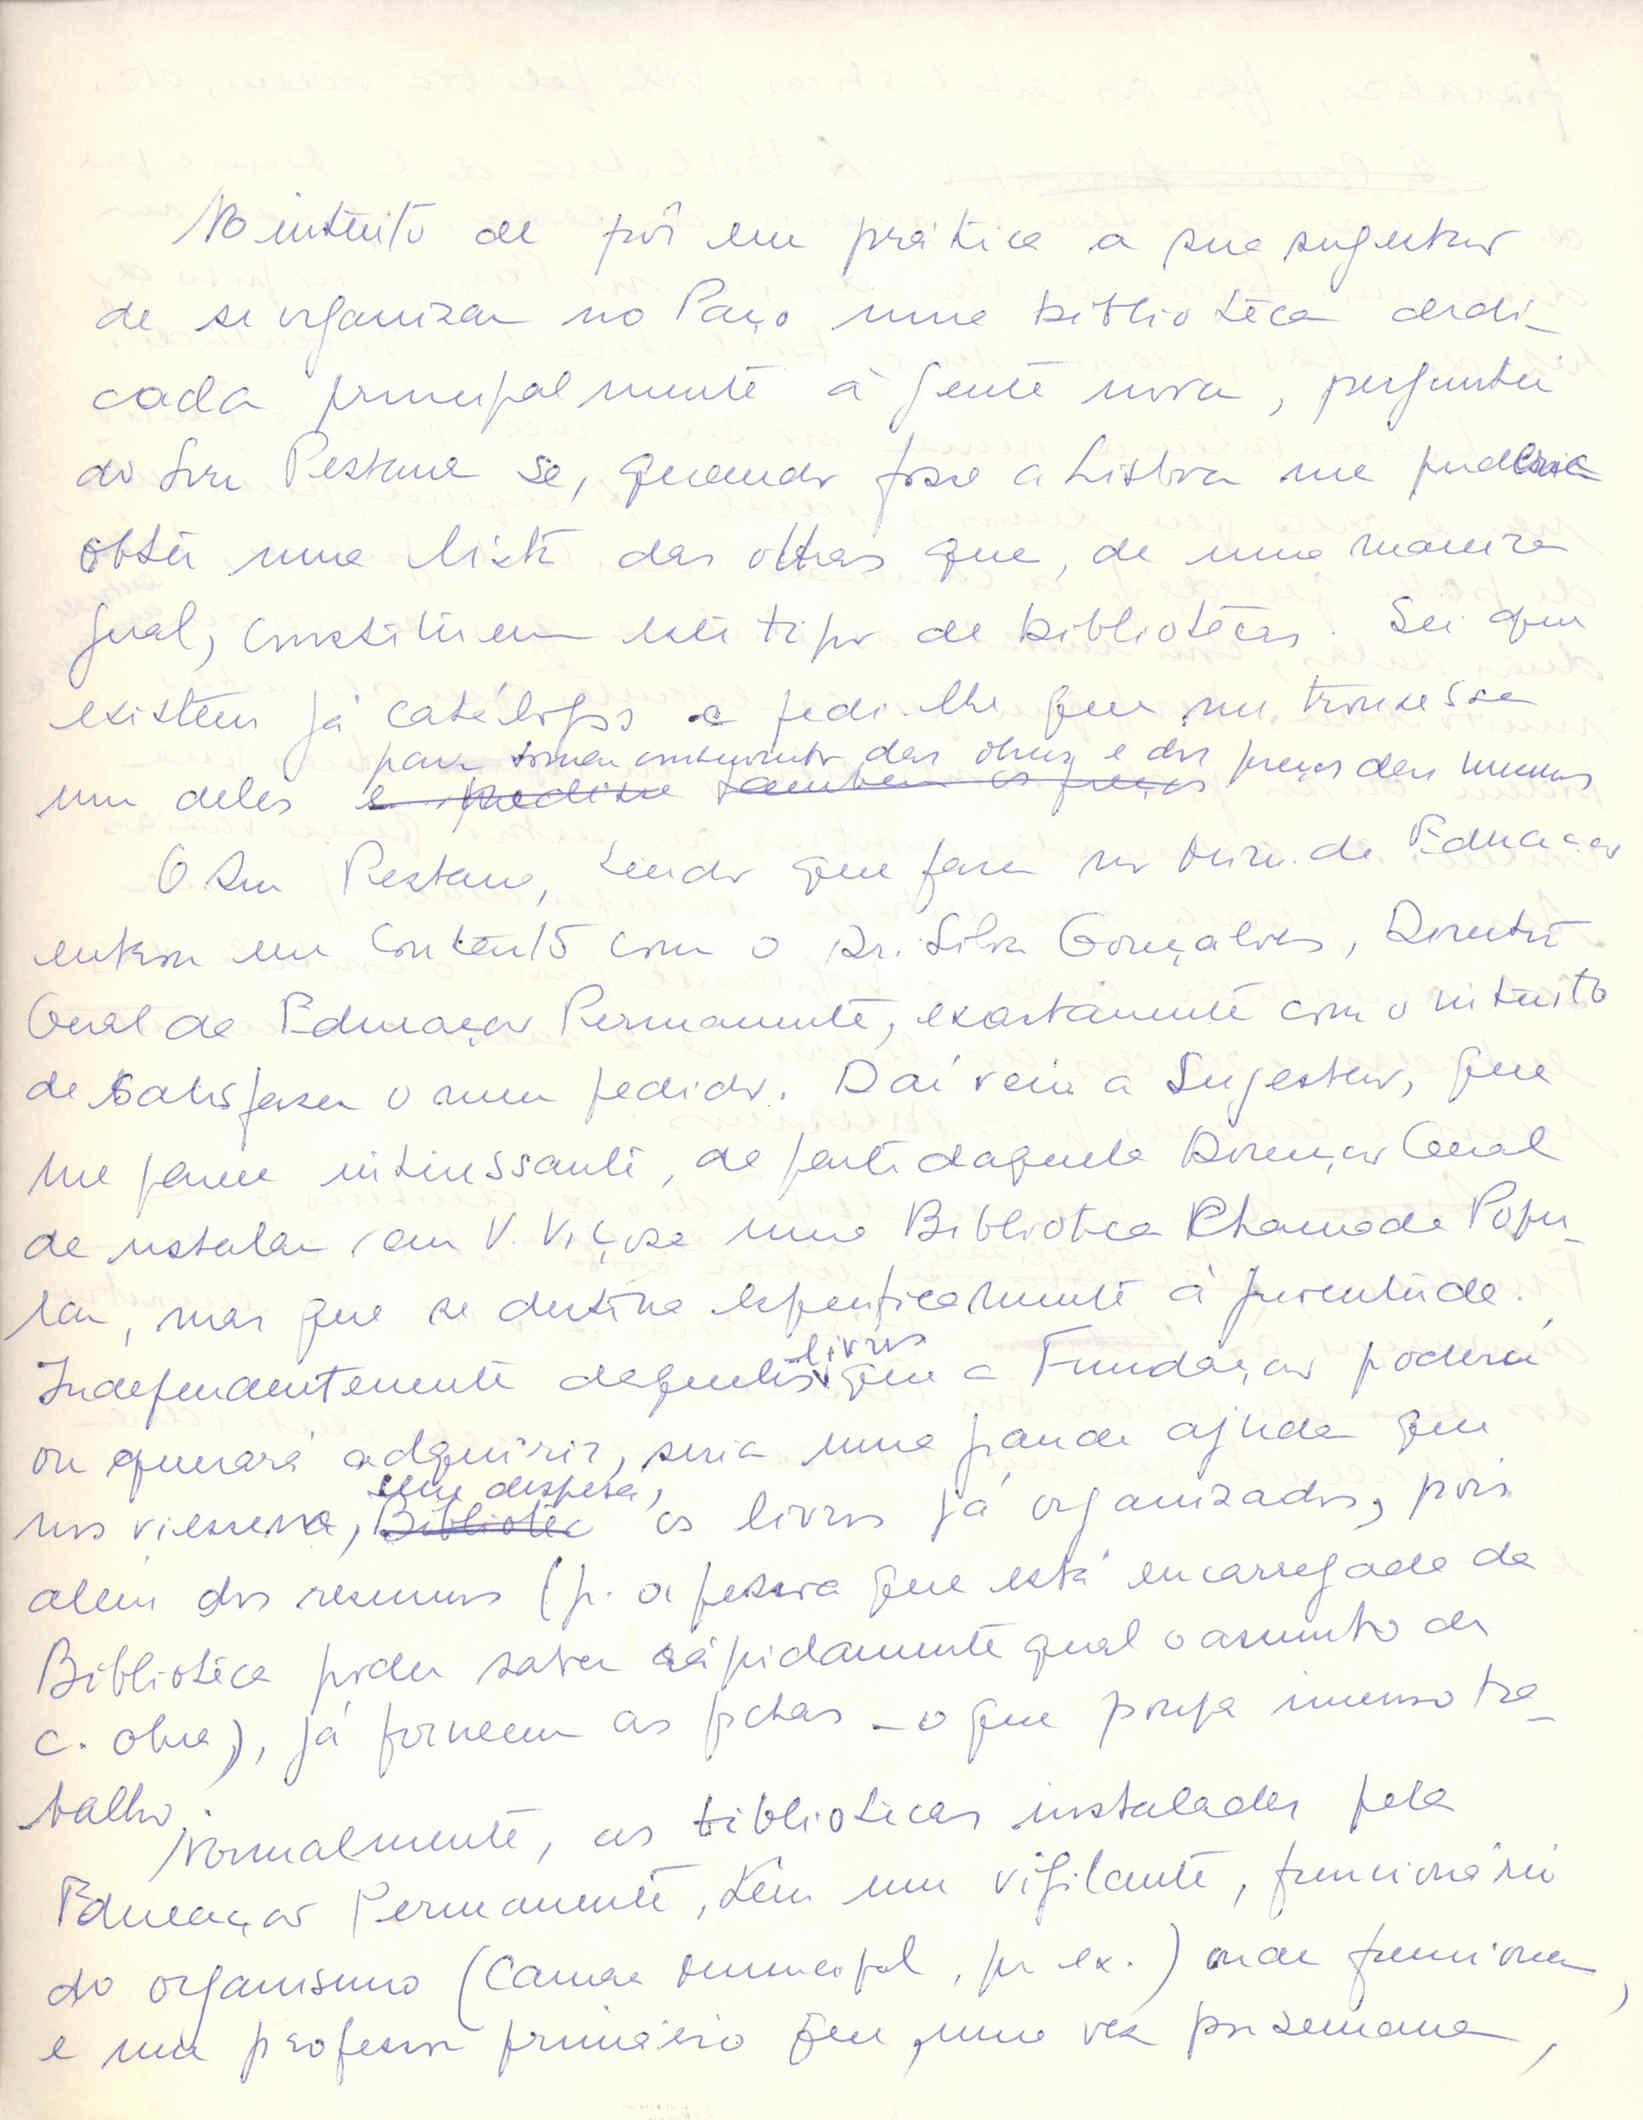 No intuito de pôr em prática a sua sugestão
de se organizar no Paço uma biblioteca dedi-
cada principalmente à gente nova, perguntei
ao Snr Pestana se, quando fosse a Lisboa me poderia
obter uma lista das obras que, de uma maneira
geral, constituem este tipo de bibliotecas. Sei que
existem já catálogos e pedi-lhe que me trouxesse
para tomar conhecimento das obras e dos preços das mesmas
um deles e pedisse também os preços
O Snr Pestana, tendo que fazer no Min. da Educação
entrou em contacto com o Dr. Silva Gonçalves, Director
Geral da Educação Permanente, exactamente com o intuito
de satisfazer o meu pedido. Daí veio a sugestão, que
me parece interessante, da parte daquela Direcção Geral
de instalar em V. Viçosa uma Biblioteca Chamada Popu-
lar, mas que se destina especificamente à juventude.
livros
Independentemente daqueles que a Fundação poderá
ou quererá adquirir, seria uma grande ajuda que
sem despesa,
nos viessem, Bibliotec os livros já organizados, pois
além dos resumos (p. a pessoa que está encarregada da
Biblioteca poder saber rápidamente qual o assunto de
c. obra), já fornecem as fichas - o que poupa imenso tra-
balho.
Normalmente, as bibliotecas instaladas pela
Educação Permanente, têm um vigilante, funcionário
do organismo (Camara Municipal, por ex.) onde funcionam,
e um professor primário que, uma vez por semana,